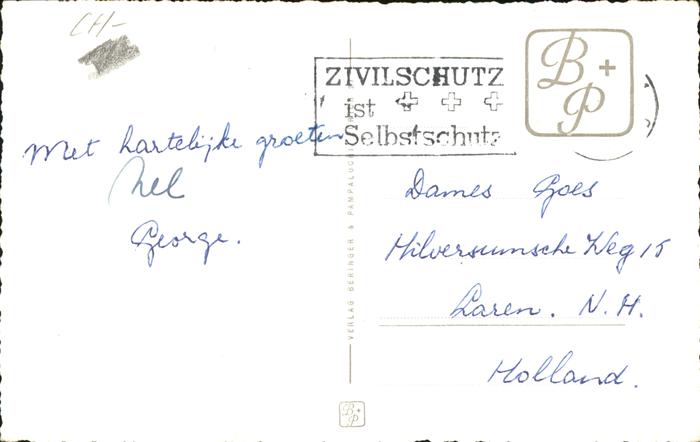 CH-
ZIVILSCHUTZ
ist
Selbstschutz
B + P
Met hartelijke groeten
Nel
George.
Dames Goes
Hilversumsche Weg 15
Laren. N. H.
Holland.
VERLAG BERINGER & PAMPALUCHI
B + P